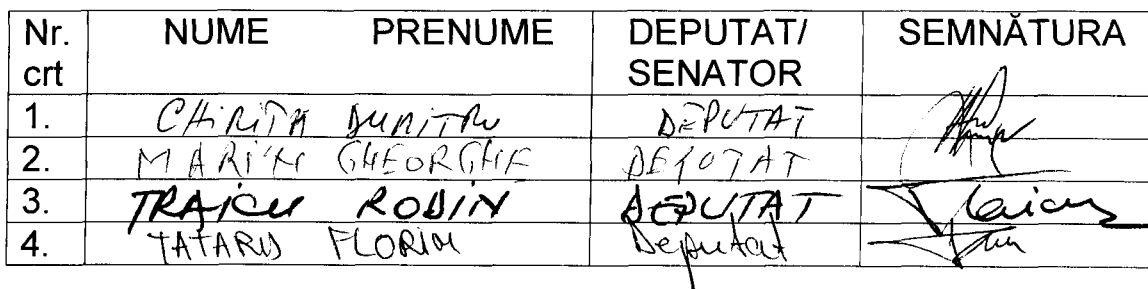 Nr. crt NUME PRENUME DEPUTAT/ SENATOR SEMNĂTURA
1. CHIRIȚA DUMITRU DEPUTAT
2. MARIN GHEORGHE DEPUTAT
3. TRAICU ROBIN DEPUTAT Traicu
4. TATARU FLORIN Deputat